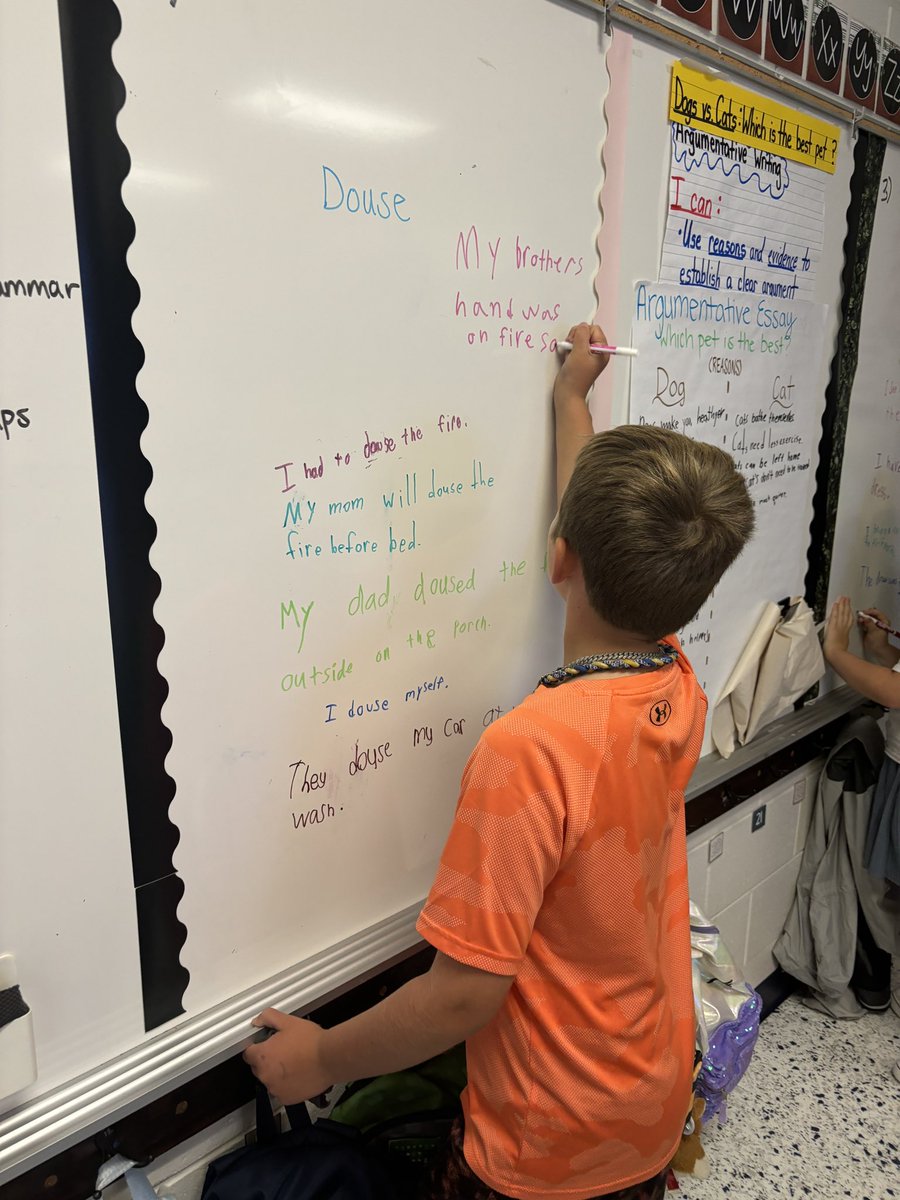 Ww
Xx
Yy
Zz
ammar
ps
Douse
My brothers
hand was
on fire so
I had to douse the fire.
My mom will douse the
fire before bed.
My dad doused the
outside on the porch.
I douse myself.
They douse my car at
wash.
Dogs vs. Cats: Which is the best pet?
Argumentative Writing
I can:
•Use reasons and evidence to
establish a clear argument
Argumentative Essay
Which pet is the best?
(REASONS)
Dog
Cat
make you healthy
Cats bathe themselves
Cats need less exercise
can be left home
3)
I have
dress.
The
21